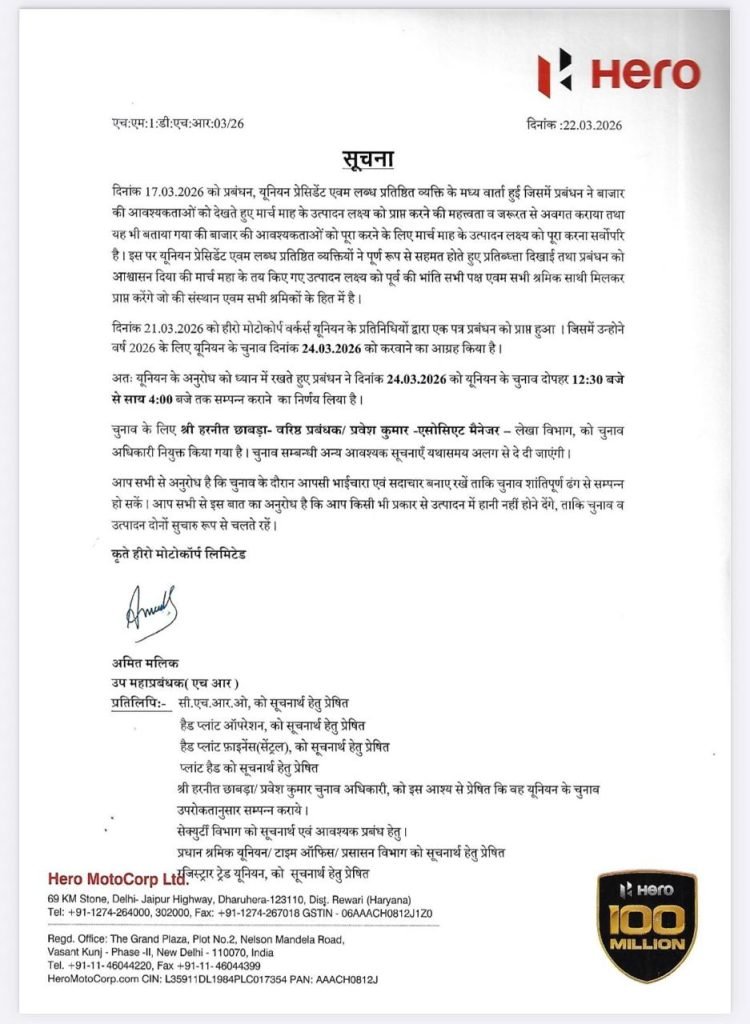 Hero
एच:एम:1:डी:एच:आर:03/26
दिनांक :22.03.2026
सूचना
दिनांक 17.03.2026 को प्रबंधन, यूनियन प्रेसिडेंट एवम लब्ध प्रतिष्ठित व्यक्ति के मध्य वार्ता हुई जिसमें प्रबंधन ने बाजार
की आवश्यकताओं को देखते हुए मार्च माह के उत्पादन लक्ष्य को प्राप्त करने की महत्त्वता व जरूरत से अवगत कराया तथा
यह भी बताया गया की बाजार की आवश्यकताओं को पूरा करने के लिए मार्च माह के उत्पादन लक्ष्य को पूरा करना सर्वोपरि
है। इस पर यूनियन प्रेसिडेंट एवम लब्ध प्रतिष्ठित व्यक्तियों ने पूर्ण रूप से सहमत होते हुए प्रतिब्ध्ता दिखाई तथा प्रबंधन को
आश्वासन दिया की मार्च महा के तय किए गए उत्पादन लक्ष्य को पूर्व की भांति सभी पक्ष एवम सभी श्रमिक साथी मिलकर
प्राप्त करेंगे जो की संस्थान एवम सभी श्रमिकों के हित में है।
दिनांक 21.03.2026 को हीरो मोटोकोर्प वर्कर्स यूनियन के प्रतिनिधियों द्वारा एक पत्र प्रबंधन को प्राप्त हुआ । जिसमें उन्होने
वर्ष 2026 के लिए यूनियन के चुनाव दिनांक 24.03.2026 को करवाने का आग्रह किया है।
अतः यूनियन के अनुरोध को ध्यान में रखते हुए प्रबंधन ने दिनांक 24.03.2026 को यूनियन के चुनाव दोपहर 12:30 बजे
से साय 4:00 बजे तक सम्पन्न कराने का निर्णय लिया है।
चुनाव के लिए श्री हरनीत छाबड़ा- वरिष्ठ प्रबंधक/ प्रवेश कुमार -एसोसिएट मैनेजर – लेखा विभाग, को चुनाव
अधिकारी नियुक्त किया गया है। चुनाव सम्बन्धी अन्य आवश्यक सूचनाएँ यथासमय अलग से दे दी जाएंगी।
आप सभी से अनुरोध है कि चुनाव के दौरान आपसी भाईचारा एवं सदाचार बनाए रखें ताकि चुनाव शांतिपूर्ण ढंग से सम्पन्न
हो सकें। आप सभी से इस बात का अनुरोध है कि आप किसी भी प्रकार से उत्पादन में हानी नहीं होने देंगे, ताकि चुनाव व
उत्पादन दोनों सुचारु रूप से चलते रहें।
कृते हीरो मोटोकॉर्प लिमिटेड
अमित मलिक
उप महाप्रबंधक( एच आर )
प्रतिलिपि:- सी.एच.आर.ओ, को सूचनार्थ हेतु प्रेषित
हैड प्लांट ऑपरेशन, को सूचनार्थ हेतु प्रेषित
हैड प्लांट फ़ाइनेंस(सेंट्रल), को सूचनार्थ हेतु प्रेषित
प्लांट हैड को सूचनार्थ हेतु प्रेषित
श्री हरनीत छाबड़ा/ प्रवेश कुमार चुनाव अधिकारी, को इस आश्य से प्रेषित कि वह यूनियन के चुनाव
उपरोकतानुसार सम्पन्न कराये।
सेक्युर्टी विभाग को सूचनार्थ एवं आवश्यक प्रबंध हेतु।
प्रधान श्रमिक यूनियन/ टाइम ऑफिस/ प्रसासन विभाग को सूचनार्थ हेतु प्रेषित
रजिस्ट्रार ट्रेड यूनियन, को सूचनार्थ हेतु प्रेषित
Hero MotoCorp Ltd.
69 KM Stone, Delhi- Jaipur Highway, Dharuhera-123110, Dist. Rewari (Haryana)
Tel: +91-1274-264000, 302000, Fax: +91-1274-267018 GSTIN - 06AAACH0812J1Z0
Regd. Office: The Grand Plaza, Plot No.2, Nelson Mandela Road,
Vasant Kunj - Phase -II, New Delhi - 110070, India
Tel. +91-11- 46044220, Fax +91-11- 46044399
HeroMotoCorp.com CIN: L35911DL1984PLC017354 PAN: AAACH0812J
Hero
100
MILLION